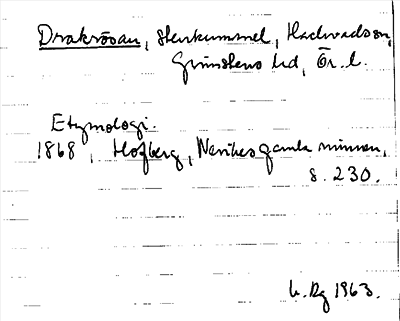 Drakrösan, stenkummel, Hackvadssn,
Grimstens hd, Ör. l.
Etymologi.
1868, Hofberg, Nerikes gamla minnen,
s. 230.
1963.